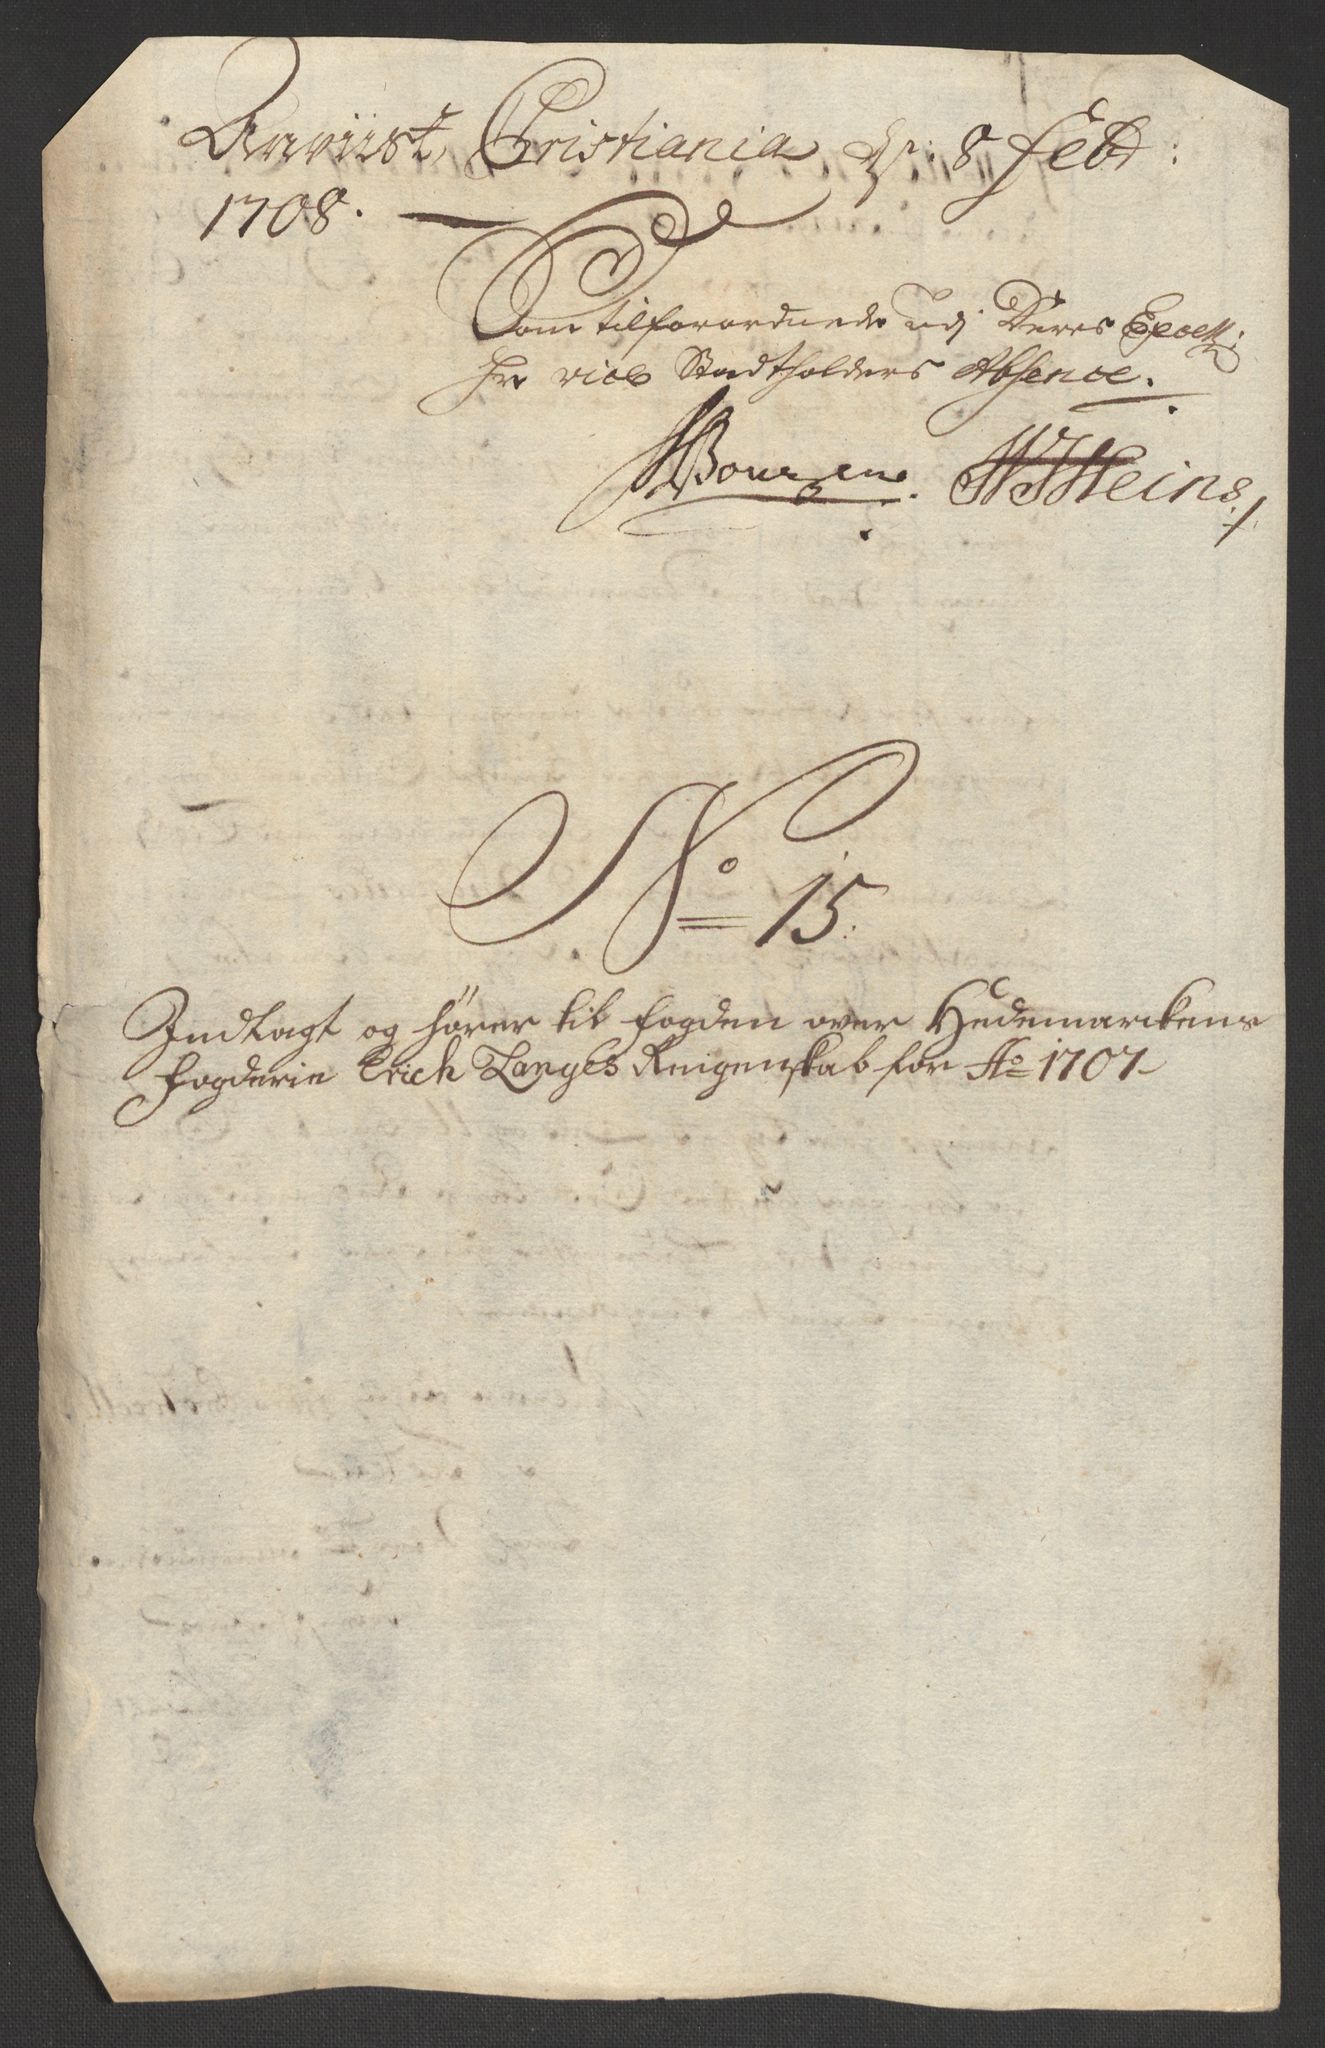 Anviist, Cristiania dn: 8 Febr:
1708.
Som tilforordnede udj Deres Excell:
Hr vice Stadtholders Absence.
Bourgen. WJHeins
No 15.
Indlagt og hörer til fogden over Hedemarckens
fogderie Erich Langes Reigenskab for Ao 1707